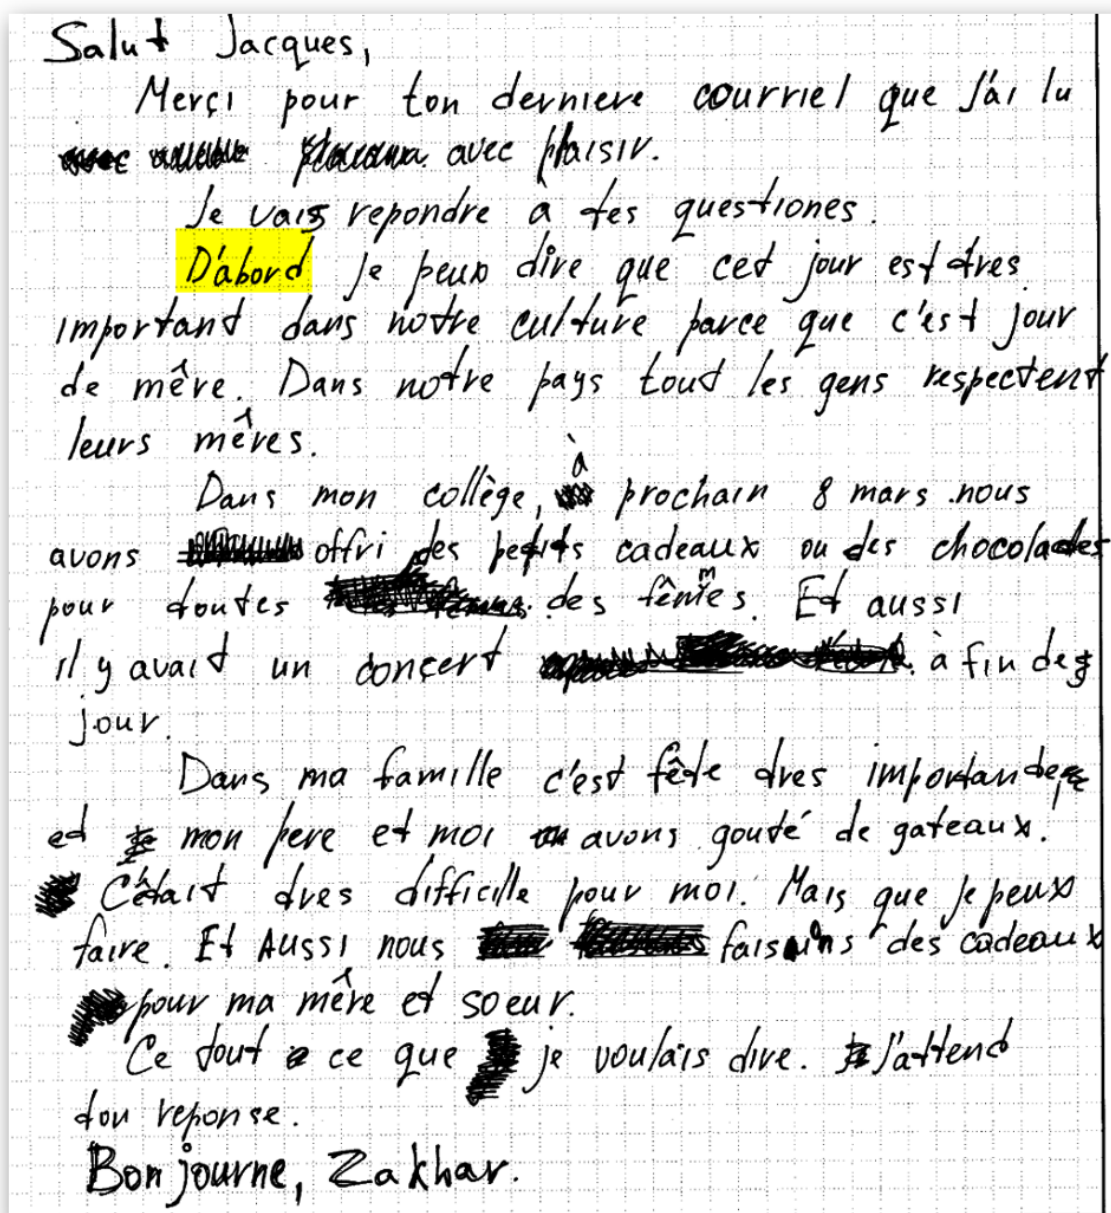 Salut Jacques,
Merçi pour ton derniere courriel que j'ai lu
avec plaisir.
Je vais repondre à tes questiones.
D'abord je peux dire que cet jour est tres
important dans notre culture parce que c'est jour
de mêre. Dans notre pays tout les gens respectent
leurs mêres.
Dans mon collège, à prochain 8 mars nous
avons offri des petits cadeaux ou des chocolades
pour toutes des fêmes. Et aussi
il y avait un conçert à fin des
jour.
Dans ma famille c'est fête tres importante
et mon pere et moi avons gouté de gateaux.
C'était tres difficille pour moi. Mais que je peux
faire. Et Aussi nous faisions des cadeaux
pour ma mêre et soeur.
Ce tout ce que je voulais dire. J'attend
ton reponse.
Bon journe, Zakhar.